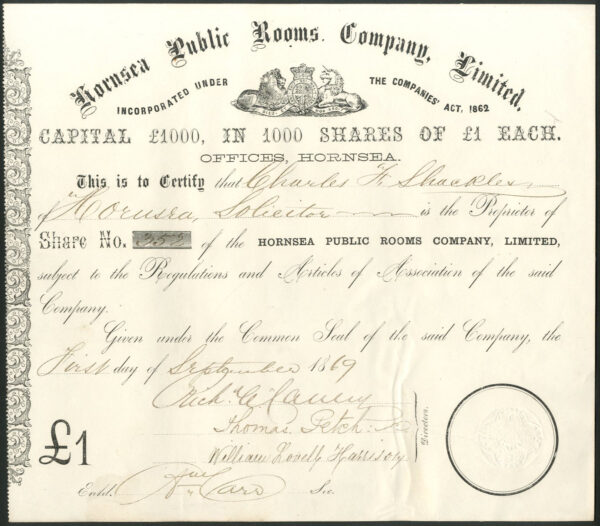 Hornsea Public Rooms Company, Limited.
INCORPORATED UNDER THE COMPANIES' ACT, 1862
CAPITAL £1000, IN 1000 SHARES OF £1 EACH.
OFFICES, HORNSEA.
This is to Certify that Charles F. Shackles
of Hornsea, Solicitor is the Proprietor of
Share No. 352 of the HORNSEA PUBLIC ROOMS COMPANY, LIMITED,
subject to the Regulations and Articles of Association of the said
Company.
Given under the Common Seal of the said Company, the
First day of September 1869
Thomas Petch
William Lovell Harrison
Directors.
£1
Entd. Sec.